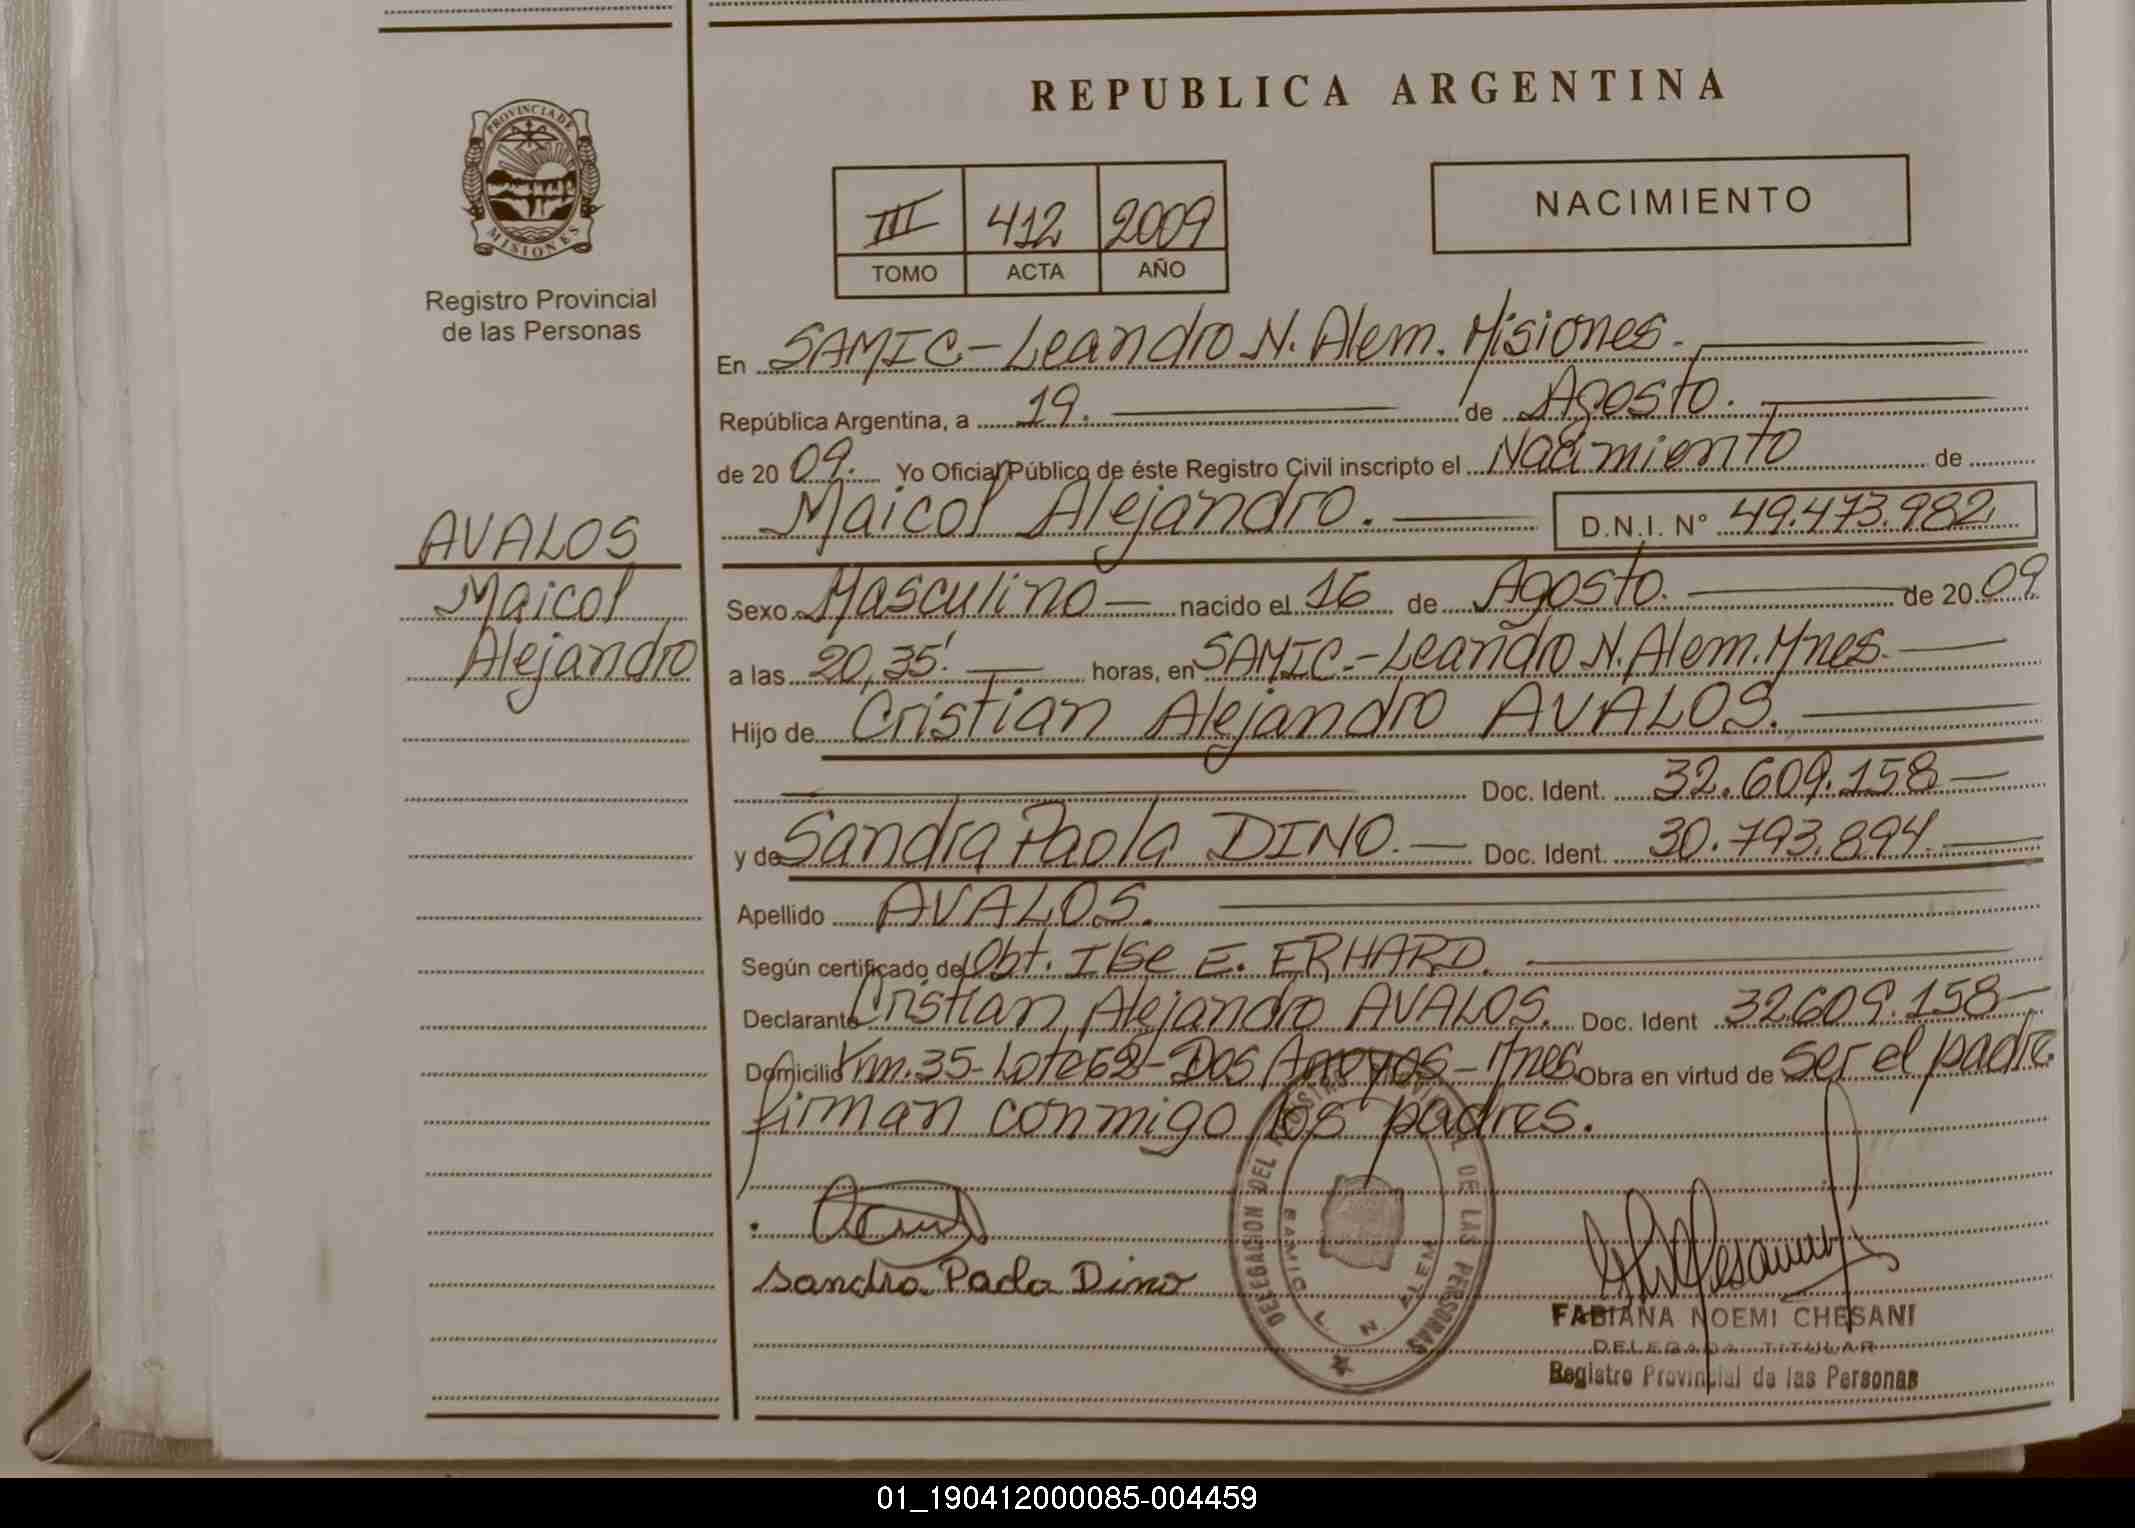 REPUBLICA ARGENTINA
PROVINCIA DE
MISIONES
Registro Provincial
de las Personas
III 412 2009
TOMO ACTA AÑO
NACIMIENTO
En SAMIC-Leandro N. Alem. Misiones.
República Argentina, a 19. de Agosto.
de 20 09. Yo Oficial Público de éste Registro Civil inscripto el Nacimiento de
Maicol Alejandro. D.N.I. N° 49.473.982.
AVALOS
Maicol
Alejandro
Sexo Masculino nacido el 16 de Agosto. de 20 09
a las 20,35'. horas, en SAMIC.-Leandro N. Alem. Mnes.
Hijo de Cristian Alejandro AVALOS.
Doc. Ident. 32.609.158
y de Sandra Paola DINO. Doc. Ident. 30.793.894.
Apellido AVALOS.
Según certificado de Obt. Ilse E. ERHARD.
Declarante Cristian Alejandro AVALOS. Doc. Ident 32.609.158
Domicilio Km. 35-Lote 62-Dos Arroyos-Mnes. Obra en virtud de ser el padre.
firman conmigo los padres.
Sandra Paola Dino
DELEGACION DEL REGISTRO PROVINCIAL DE LAS PERSONAS
SAMIC L N ALEM
FABIANA NOEMI CHESANI
DELEGADA TITULAR
Registro Provincial de las Personas
01_190412000085-004459